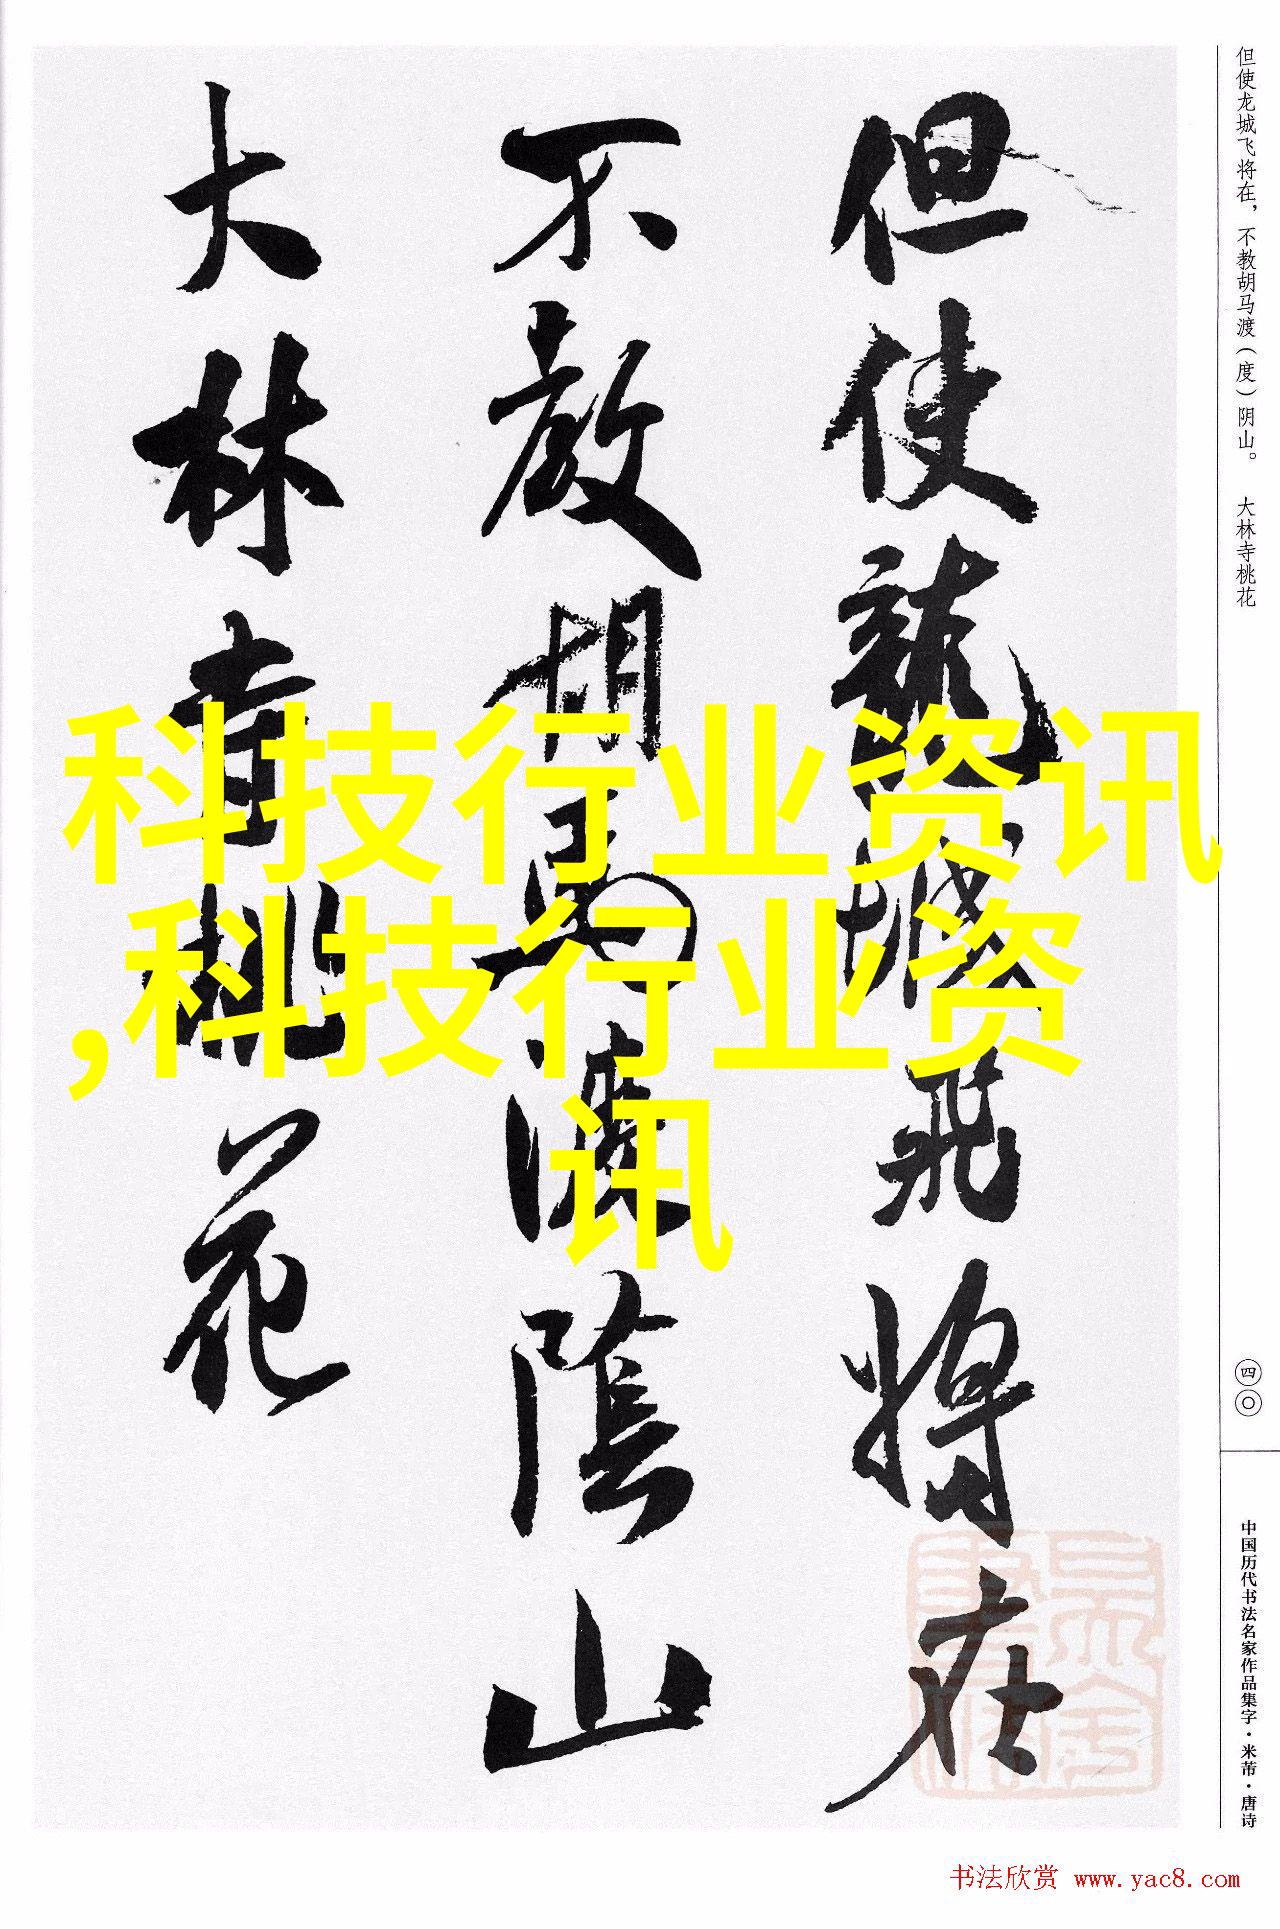 但使龍城飛將在
不教胡馬渡陰山
大林寺桃花
科技行业资讯
,科技行业资
讯
但使龙城飞将在，不教胡马渡（度）阴山。 大林寺桃花
四〇
中国历代书法名家作品集字·米芾·唐诗
书法欣赏 www.yac8.com